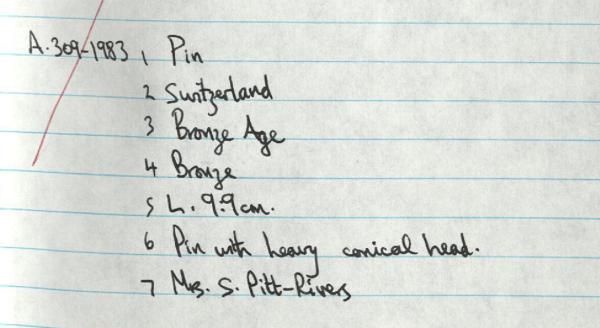 A.309-1983 1 Pin
2 Switzerland
3 Bronze Age
4 Bronze
5 L. 9.9cm.
6 Pin with heavy conical head.
7 Mrs. S. Pitt-Rivers